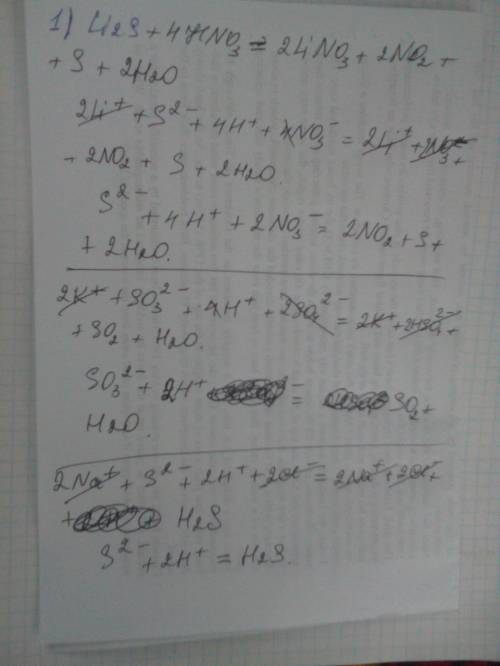 1) Li2S + 4HNO3 = 2LiNO3 + 2NO2 +
+ S + 2H2O
2Li⁺ + S²⁻ + 4H⁺ + 4NO3⁻ = 2Li⁺ + 2NO3⁻ +
+ 2NO2 + S + 2H2O.
S²⁻ + 4H⁺ + 2NO3⁻ = 2NO2 + S +
+ 2H2O.
2K⁺ + SO3²⁻ + 4H⁺ + 2SO4²⁻ = 2K⁺ + 2HSO4⁻ +
+ SO2 + H2O.
SO3²⁻ + 2H⁺ = SO2 +
H2O.
2Na⁺ + S²⁻ + 2H⁺ + 2Cl⁻ = 2Na⁺ + 2Cl⁻ +
+ H2S
S²⁻ + 2H⁺ = H2S.